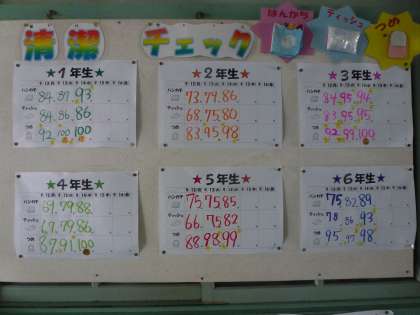 清潔 チェック
はんかち
ティッシュ
つめ
★1年生★
ハンカチ 84. 87. 93.
ティッシュ 84. 86. 86.
つめ 92 100 100
★2年生★
73. 79. 86.
68. 75. 80
83. 95. 98
★3年生★
ハンカチ 84. 95. 94.
ティッシュ 83. 95. 95.
つめ 92. 99. 100
★4年生★
ハンカチ 69. 79. 88.
ティッシュ 67. 79. 86
つめ 87. 91. 100
★5年生★
75. 75. 85.
66. 75. 82
88. 98. 99
★6年生★
ハンカチ 75 82 89
ティッシュ 78 86 93
つめ 95 97 98